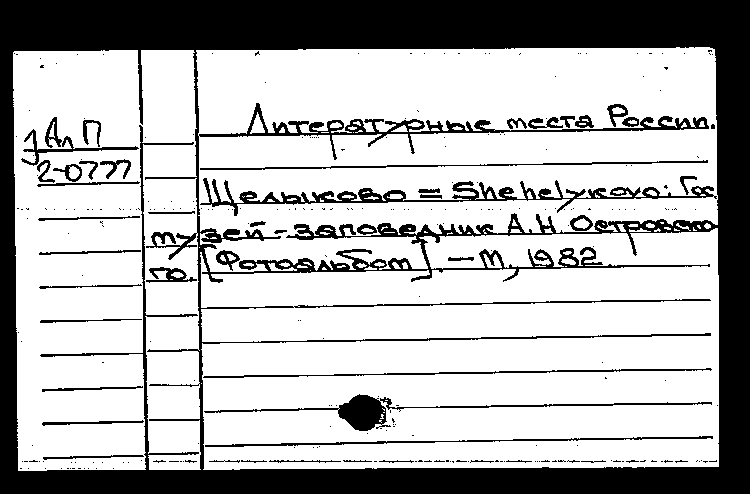 JАл П
2-0777
Литературные места России.
Щелыково = Shehelykovo: Гос
музей-заповедник А.Н. Островско
го. [Фотоальбом]. — М, 1982.